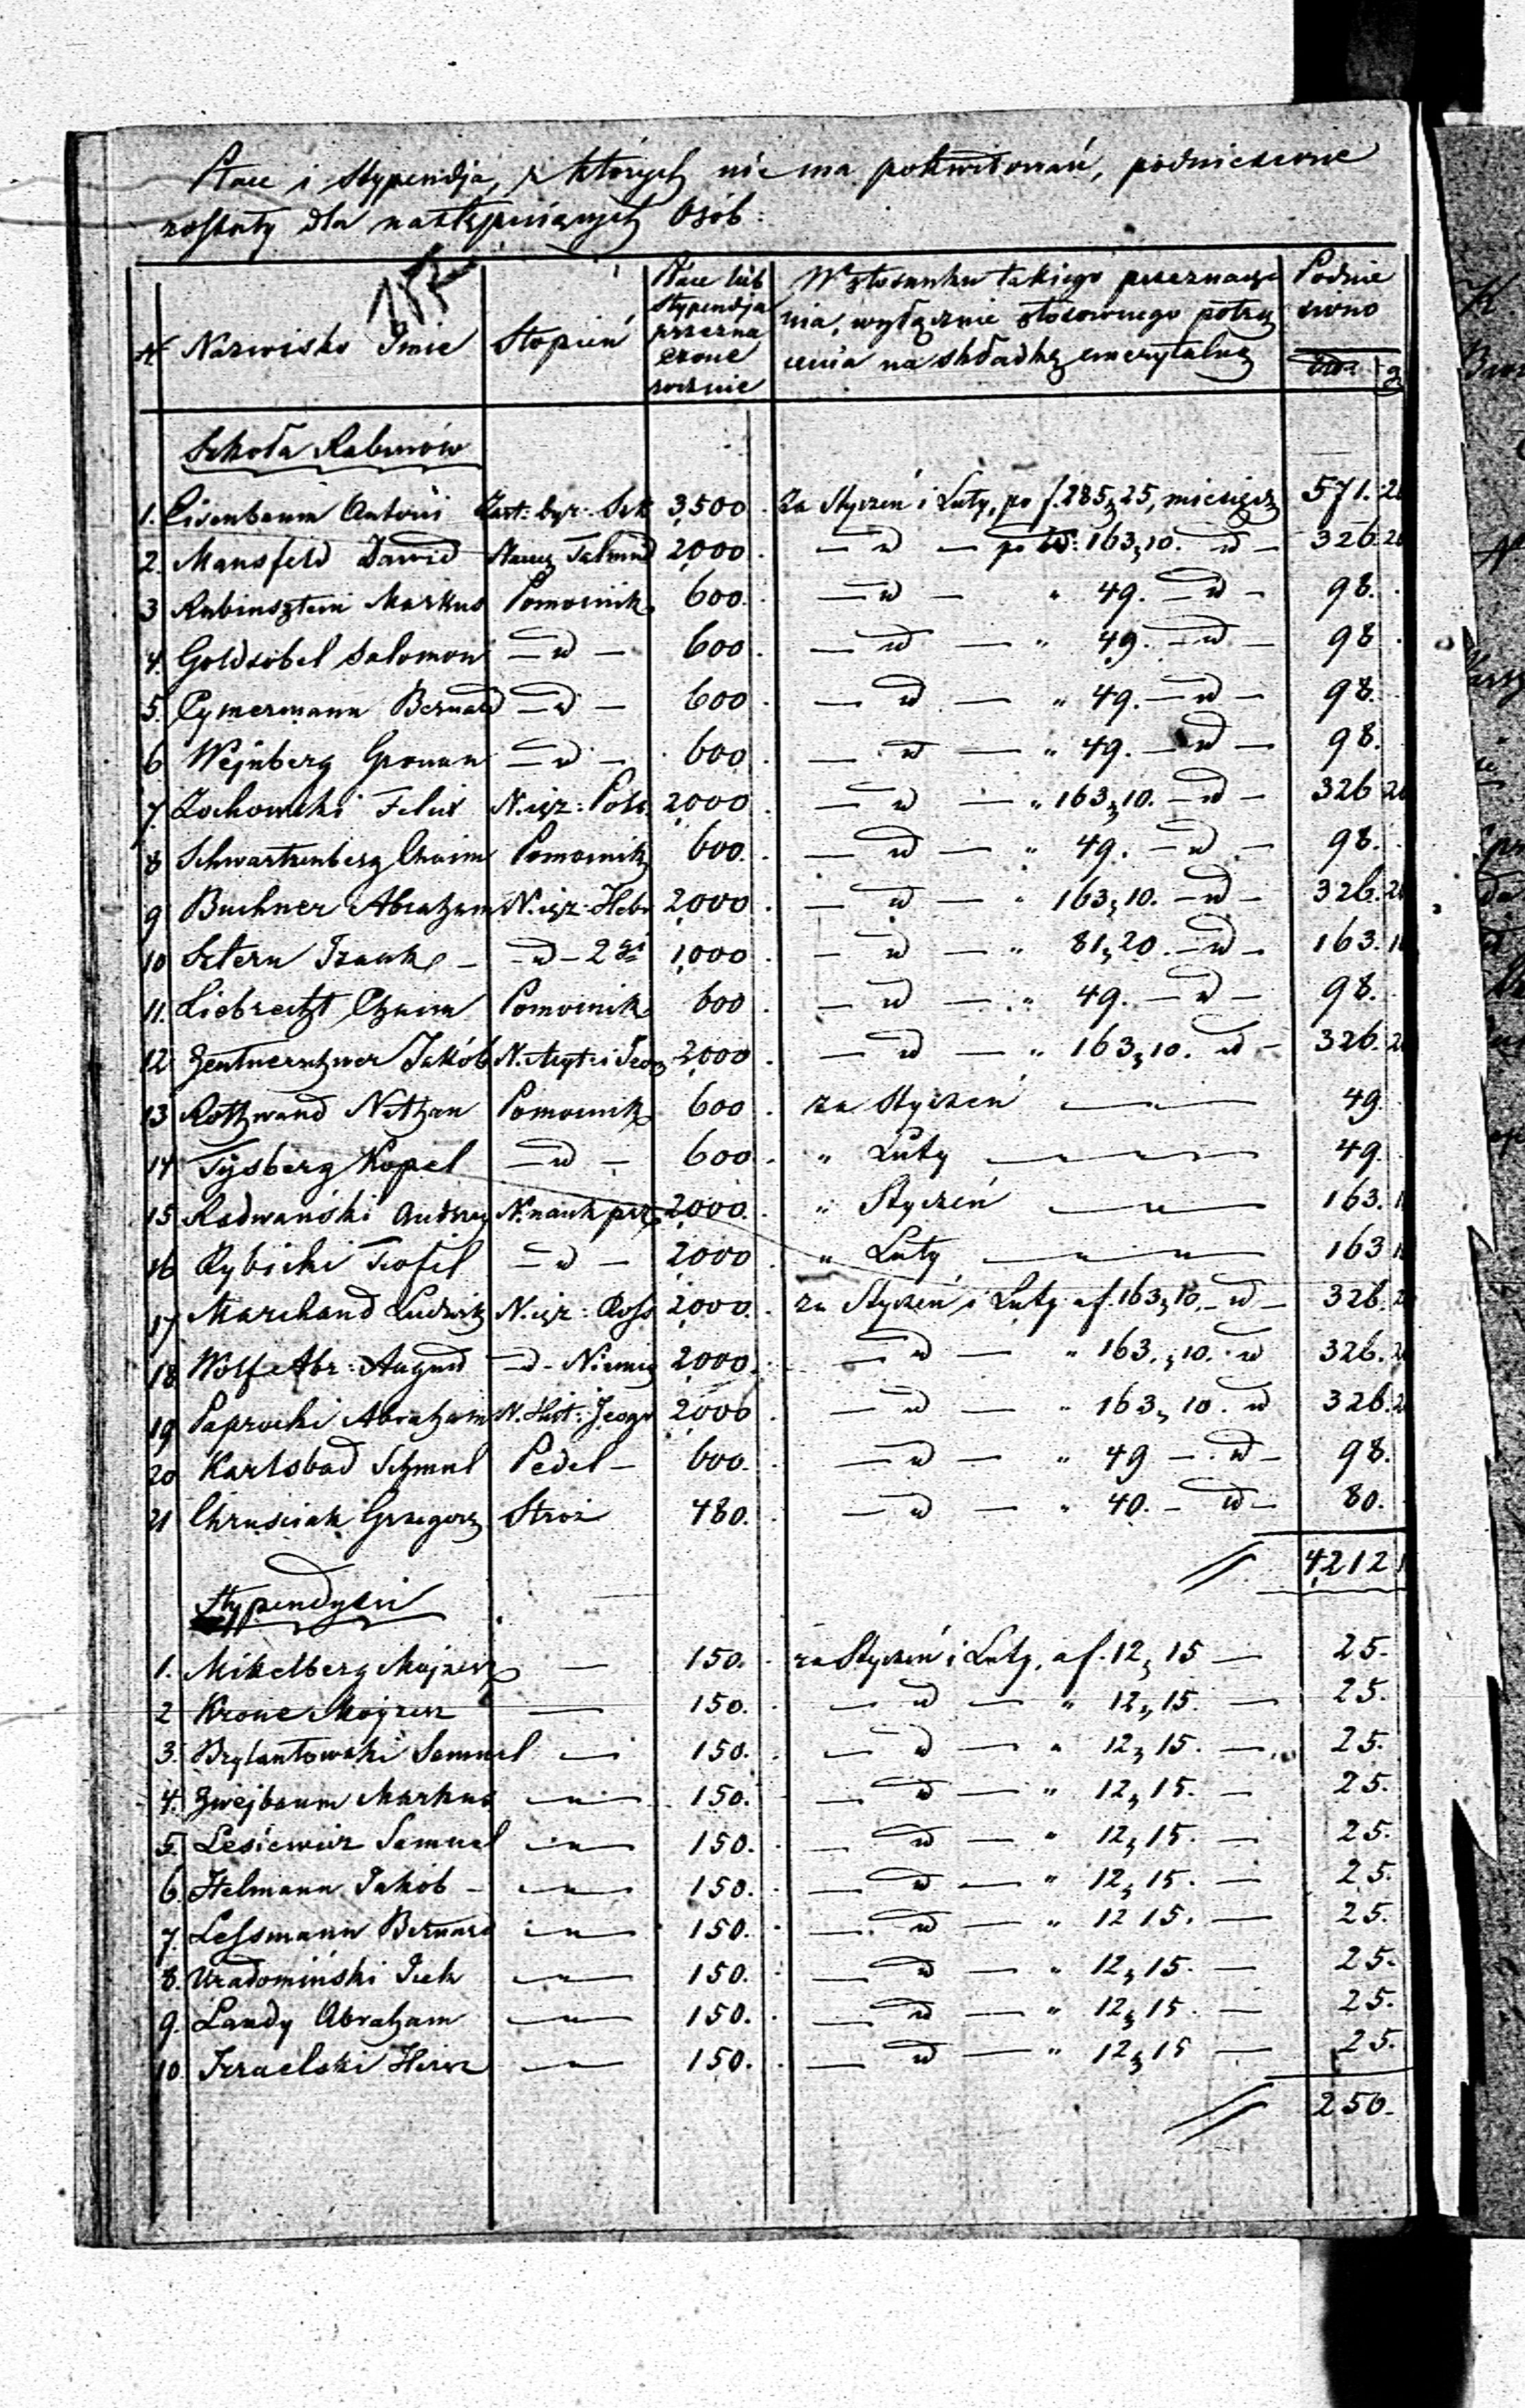 Płace i stypendja, z których nie ma pokwitowań, podniesione
zostały dla następuiących Osób:
187
N Nazwisko Imie Stopień Płace lub stypendja przezna czone rocznie W stosunku takiego przeznacze nia, wyłącznie stosownego potrą cenia na składkę emerytalną Podnie siono złp. g
Szkoła Rabinów
1. Eisenbaum Antoni Zast: Dyr: Szk 3,500. Za Styczeń i Luty, po f. 285 g 25, miesięcz 571. 20
2. Mansfeld Dawid Naucz Talmud 2,000. — d — po złp: 163 g 10. — d — 326. 20
3 Rubinsztein Markus Pomocnik 600. — d — " 49. — d — 98.
4. Goldsobel Salomon — d — 600. — d — " 49. — d — 98
5. Cymermann Bernard — d — 600. — d — " 49. — d — 98.
6 Wejnberg Gronan — d — 600. — d — " 49. — d — 98.
7. Żochowski Felix N. ięz: Pols. 2,000. — d — " 163 g 10. — d — 326 20
8 Schwartzenberg Chaim Pomocnik 600. — d — " 49. — d — 98.
9 Buchner Abraham N. ięz: Hebr 2,000. — d — " 163 g 10. — d — 326. 20
10 Sztern Izaak — — d — 2gi 1,000. — d — " 81 g 20. — d — 163. 10
11. Liebrecht Chaim Pomocnik 600. — d — " 49. — d — 98.
12 Zentnerszwer Jakób N. Aryt: i Jeog 2,000. — d — " 163 g 10. d — 326. 20
13 Rothwand Nathan Pomocnik 600. za Styczeń — " — 49.
14 Tysberg Kopel — d — 600. " Luty — " — " — 49.
15 Radwański Andrzej N. nauk prz 2,000. " Styczeń — " — 163. 10
16 Rybicki Teofil — d — 2,000. " Luty — " — " — 163 10
17 Marchand Ludwik N. ięz: Ross 2,000. za Styczeń i Luty a f. 163 g 10. — d — 326. 20
18 Wolf Abr: August — d — Niemiec 2,000. — d — " 163. g 10. d 326. 20
19 Paprocki Abraham N. Hist: Jeogr 2,000. — d — " 163 g 10. d 326. 20
20 Karlsbad Schmul Pedel — 600. — d — " 49 — d — 98.
21 Chruściak Grzegorz Stróż 480. — d — " 40. — d — 80.
4,212
Stypendyści
1. Mikelberg Mojżesz — 150. za Styczeń i Luty, a f. 12 g 15 — 25.
2 Krone Mojżesz — 150. — d — " 12 g 15. — 25.
3. Brylantowski Samuel — 150. — d — " 12 g 15. — 25.
4. Zwejbaum Markus — " — 150. — d — " 12 g 15. — 25.
5. Lesiewicz Samuel — " — 150. — d — " 12 g 15. — 25.
6. Helmann Jakób — — " — 150. — d — " 12 g 15. — 25.
7. Lessmann Bernard — " — 150. — d — " 12 15. — 25.
8. Uradomiński Icek — " — 150. — d — " 12 g 15. — 25.
9. Landy Abraham — " — 150. — d — " 12 g 15. — 25.
10. Izraelski Hersz — " — 150. — d — " 12 g 15 — 25.
250.